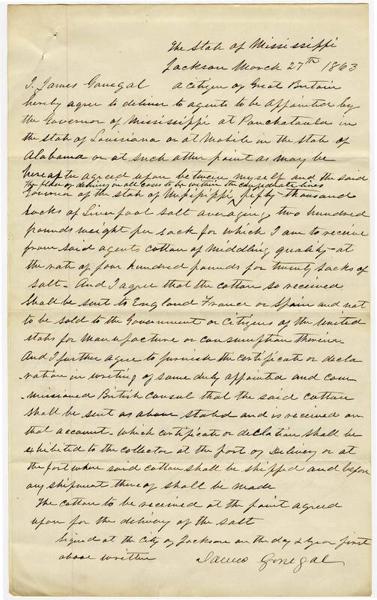 The State of Mississippi
Jackson March 27th 1863
I, James Gonegal a citizen of Great Britain
hereby agree to deliver to agents to be appointed by
the Governor of Mississippi at Ponchatoula in
the state of Louisiana or at Mobile in the State of
Alabama or at such other point as may be
hereafter agreed upon between myself and the said
The place of delivery in all cases to be within the confederate lines
Governor of the state of Mississippi, fifty thousand
sacks of Liverpool salt averaging two hundred
pounds weight per sack for which I am to receive
from said agents cotton of middling quality at
the rate of four hundred pounds for twenty sacks of
salt. And I agree that the cotton so received
shall be sent to England France or Spain and not
to be sold to the Government or Citizens of the United
States for manufacture or consumption therein
And I further agree to furnish the certificate or decla
ration in writing of some duly appointed and com
missioned British Consul that the said cotton
shall be sent as above stated and is received on
that account. which certificate or declaration shall be
exhibited to the collector at the port of Delivery or at
the port where said cotton shall be shipped and before
any shipment thereof shall be made
The cotton to be received at the point agreed
upon for the delivery of the salt
Signed at the City of Jackson on the day & year first
above written James Gonegal